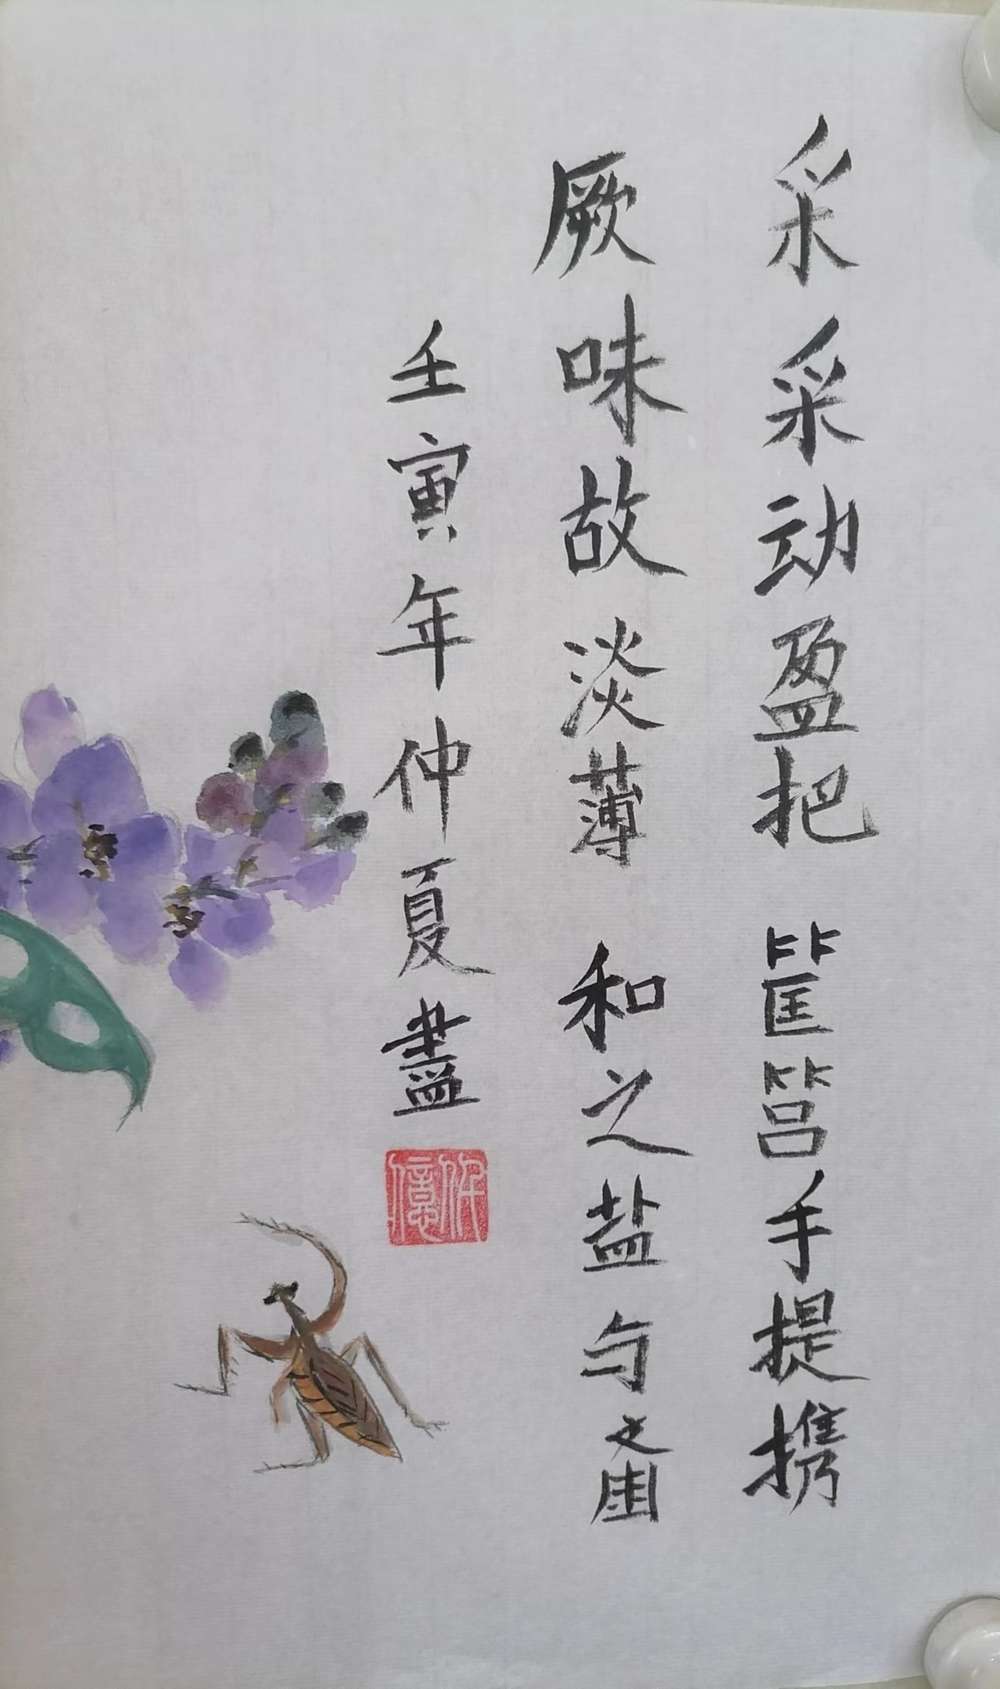 采采动盈把 筐筥手提携
厥味故淡薄 和之盐与齑
壬寅年仲夏盡